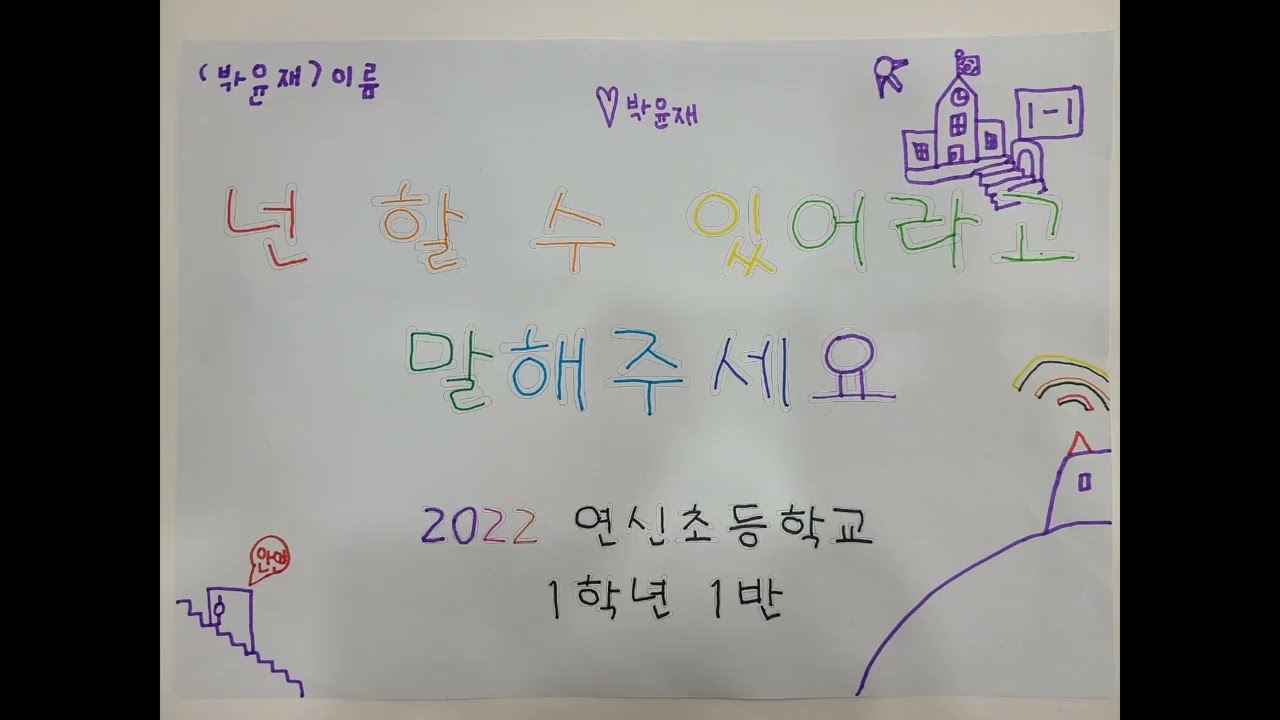 (박윤재) 이름
♡박윤재
1-1
넌 할 수 있어라고
말해주세요
2022 연신초등학교
1학년 1반
안녕